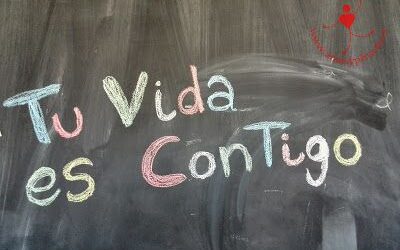 Tu Vida
es ConTigo